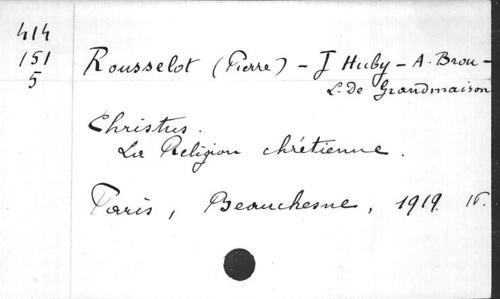 414
151
5
Rousselot (Pierre) - J Huby - A. Brou -
L. de Grandmaison
Christus.
La Religion chrétienne.
Paris, Beauchesne, 1919. 16.